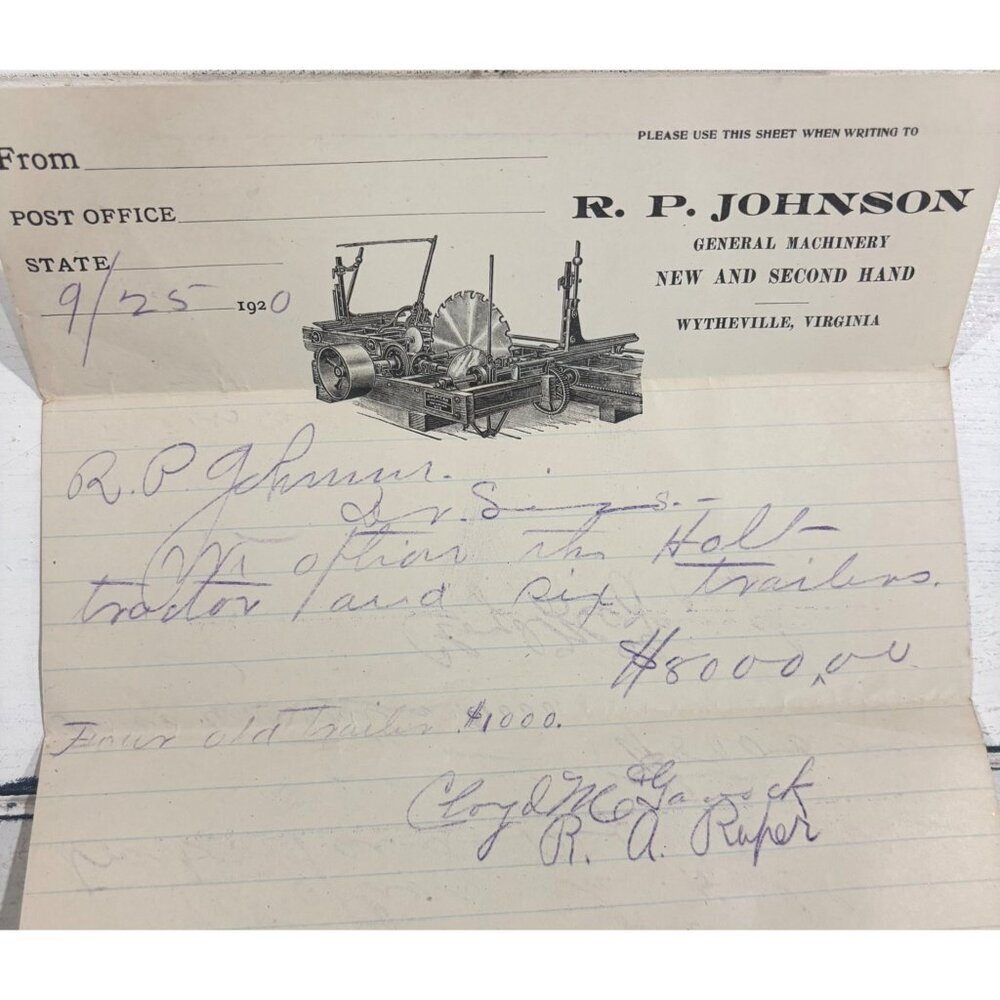 PLEASE USE THIS SHEET WHEN WRITING TO
From
POST OFFICE
STATE
9/25 1920
R. P. JOHNSON
GENERAL MACHINERY
NEW AND SECOND HAND
WYTHEVILLE, VIRGINIA
R. P. Johnson.
Dr. S
We option the Holt
tractor and six trailers.
$8000,00
Four old trailer $1000.
Cloyd Mc
R. A. Ruper